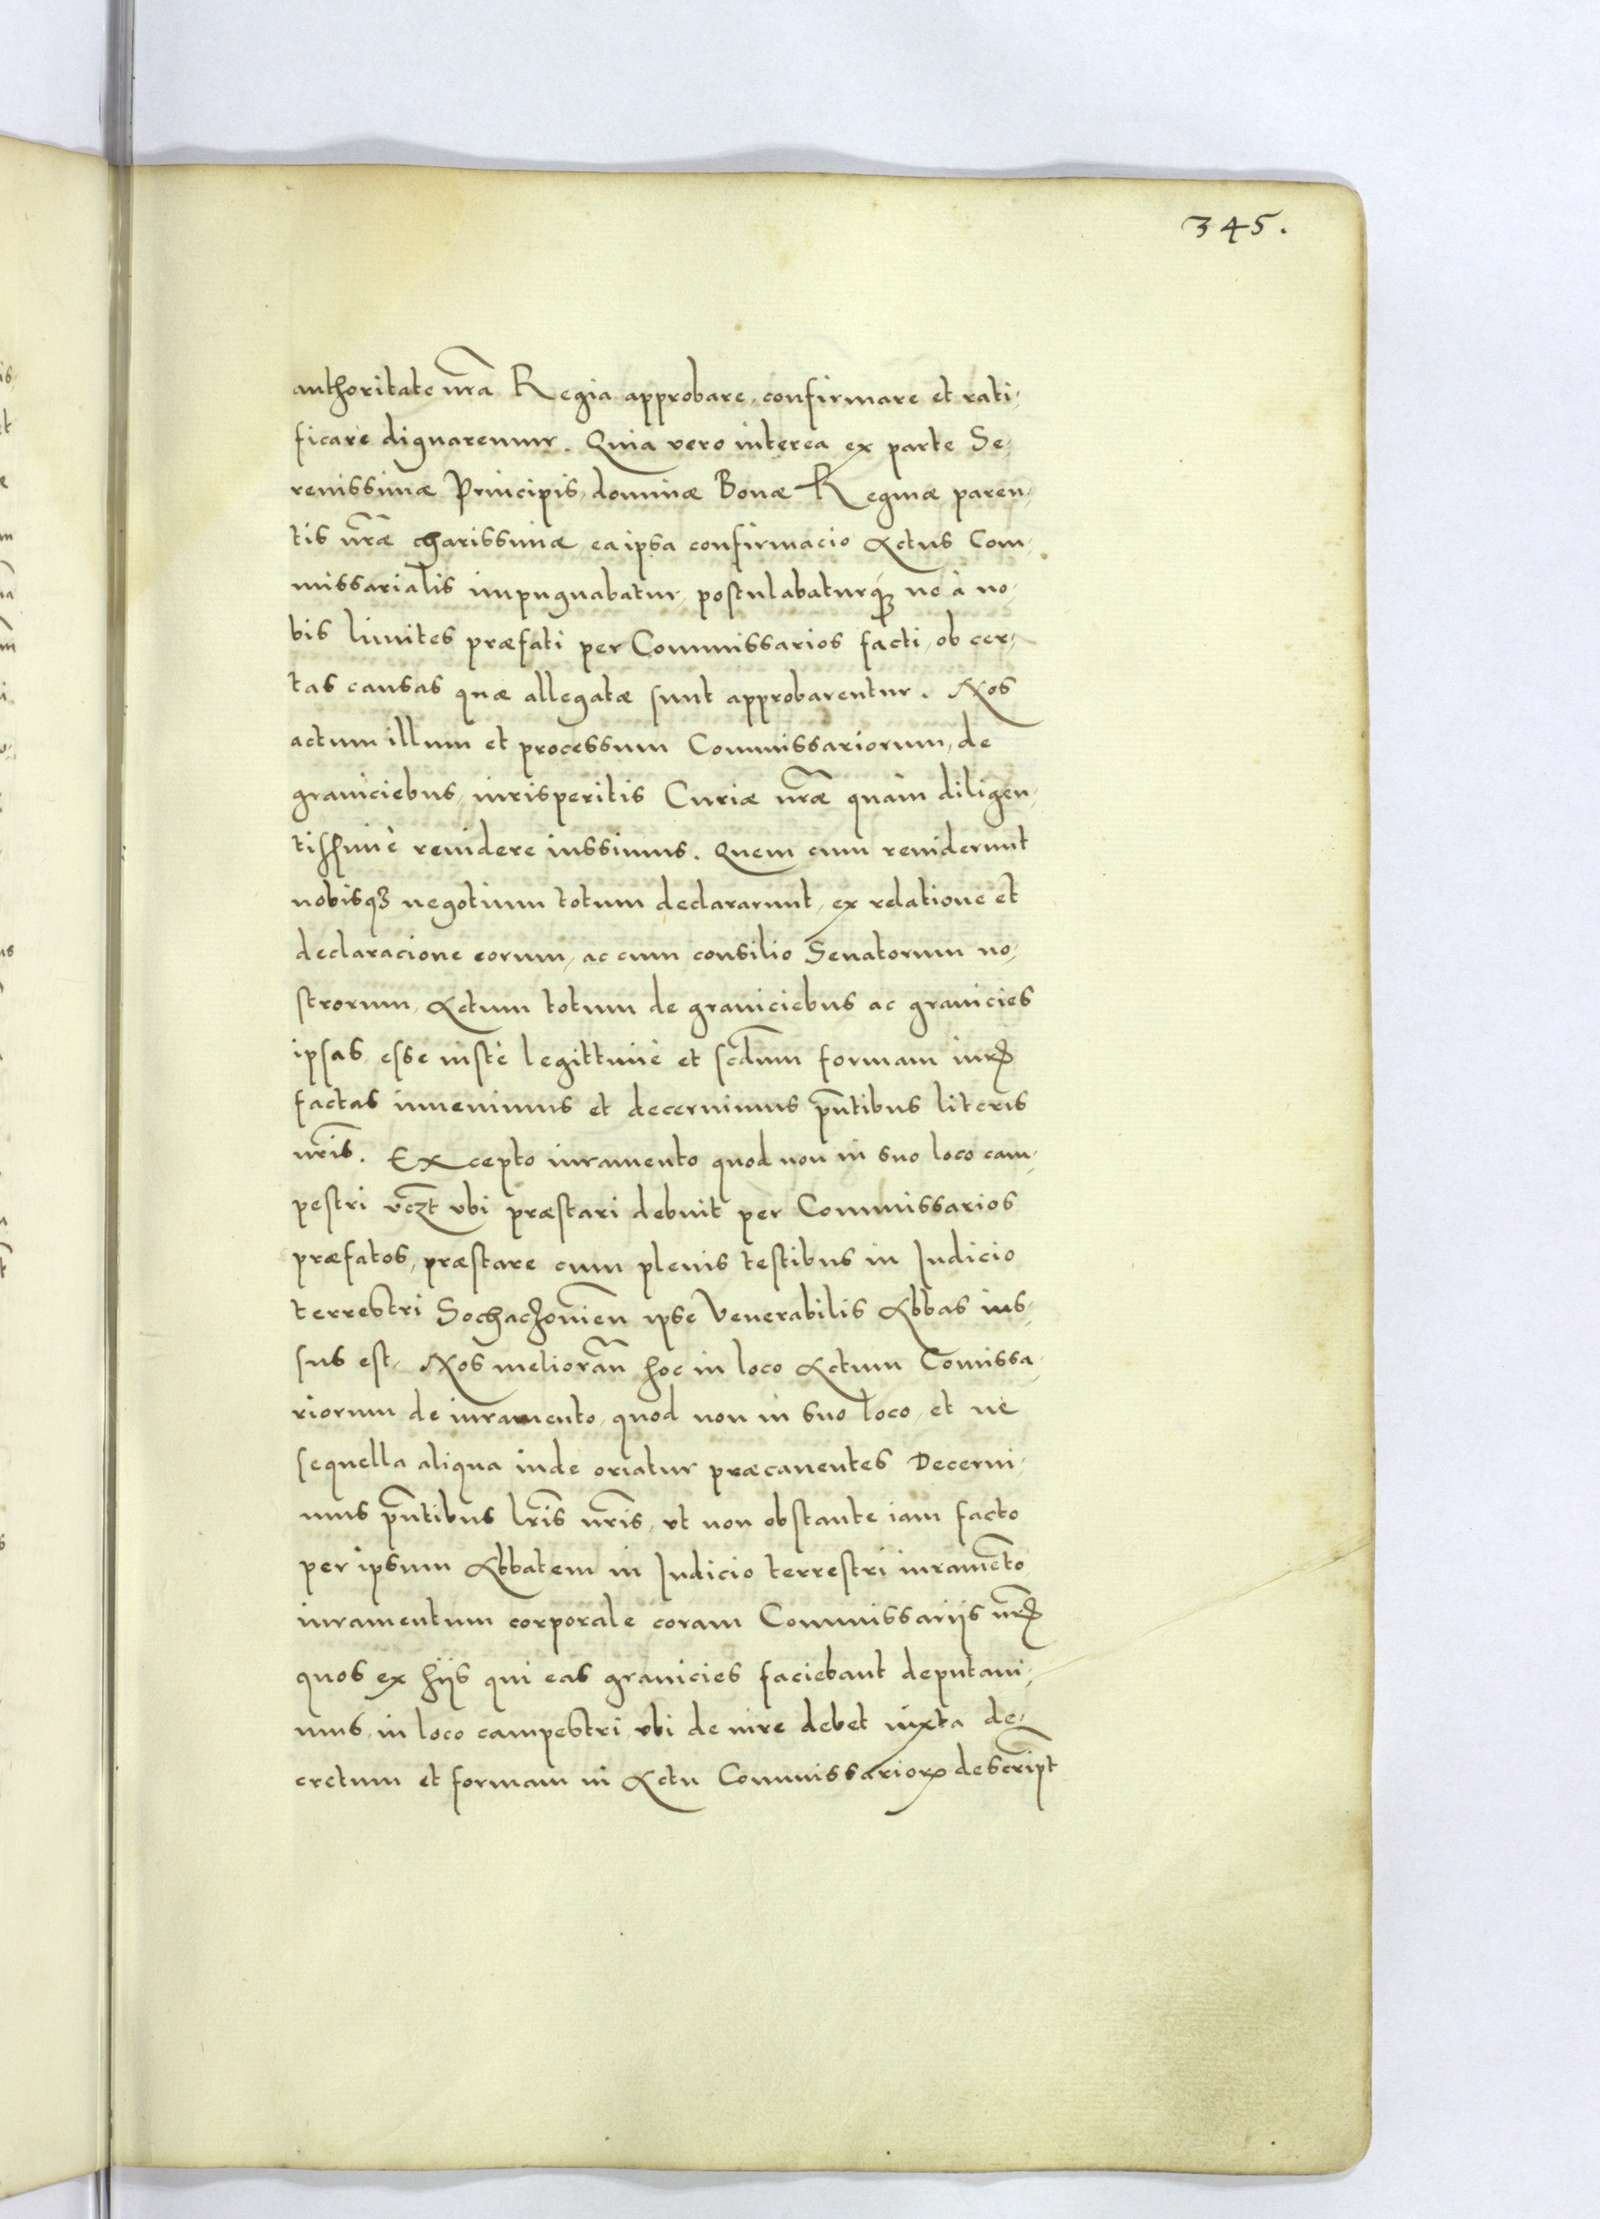 345.
authoritate nr̃a Regia approbare, confirmare et rati-
ficare dignaremur. Quia vero interea ex parte Se-
renissimæ Principis, dominæ Bonæ Reginæ paren-
tis nr̃æ charissimæ ea ipsa confirmacio Actus Com-
missarialis impugnabatur, postulabaturq́ꝫ ne à no-
bis limites præfati per Commissarios facti, ob cer-
tas causas quæ allegatæ sunt approbarentur. Nos
actum illum et processum Commissariorum, de
graniciebus, iurisperitis Curiæ nr̃æ quàm diligen-
tissimè reuidere iussimus. Quem cum reuiderunt
nobisqꝫ negotium totum declararunt, ex relatione et
declaracione eorum, ac cum consilio Senatorum no-
strorum, Actum totum de graniciebus ac granicies
ipsas, esse iustè legittimè et scd̃um formam iurꝭ
factas inuenimus et decernimus pn̄tibus literis
nr̃is. Excepto iuramento quod non in suo loco cam-
pestri vcꝫt vbi præstari debuit per Commissarios
præfatos, præstare cum plenis testibus in Judicio
terrestri Sochaczouien̄ ipse Venerabilis Abbas ius-
sus est. Nos melioran̄ hoc in loco Actum Comissa-
riorum de iuramento, quod non in suo loco, et ne
sequella aliqua inde oriatur præcauentes Decerni-
mus pn̄tibus lr̃is nr̃is, vt non obstante iam facto
per ipsum Abbatem in Judicio terrestri iuramēto
iuramentum corporale coram Commissarijs nr̃ꝭ
quos ex hijs qui eas granicies faciebant deputaui-
mus, in loco campestri, vbi de iure debet iuxta de-
cretum et formam in Actu Commissarioꝝ descript̄